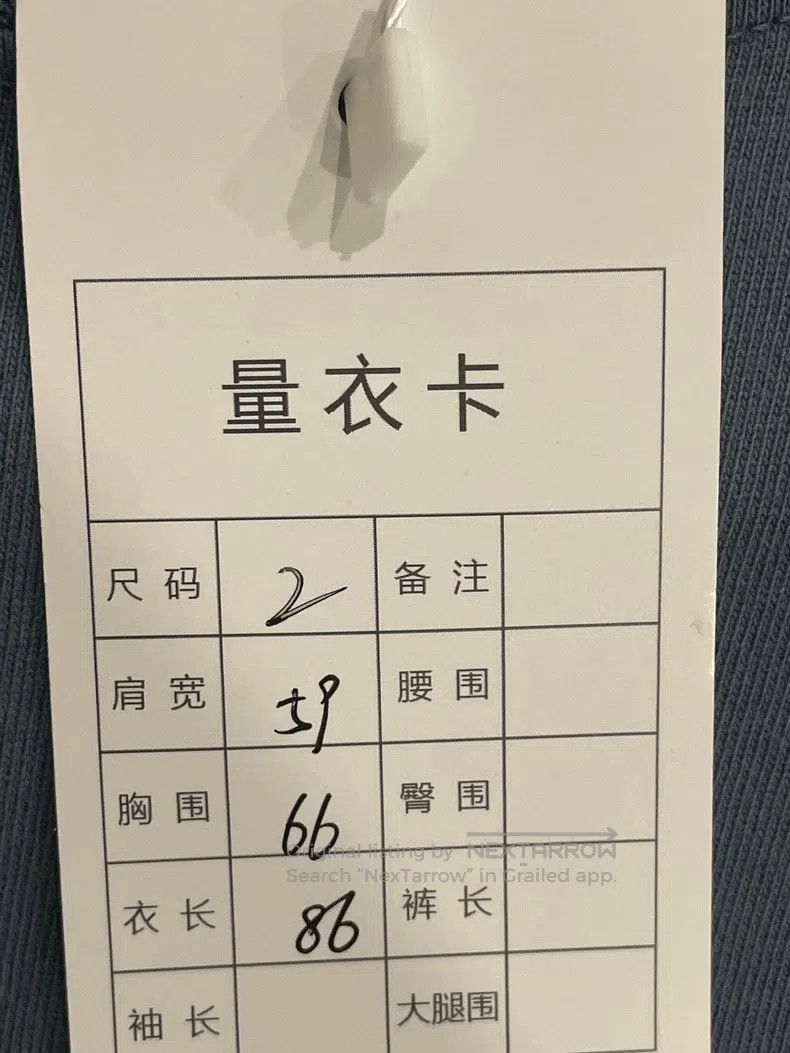 量衣卡
尺码 2 备注
肩宽 59 腰围
胸围 66 臀围
Original listing by NEXTARROW
Search "NexTarrow" in Grailed app.
衣长 86 裤长
袖长 大腿围